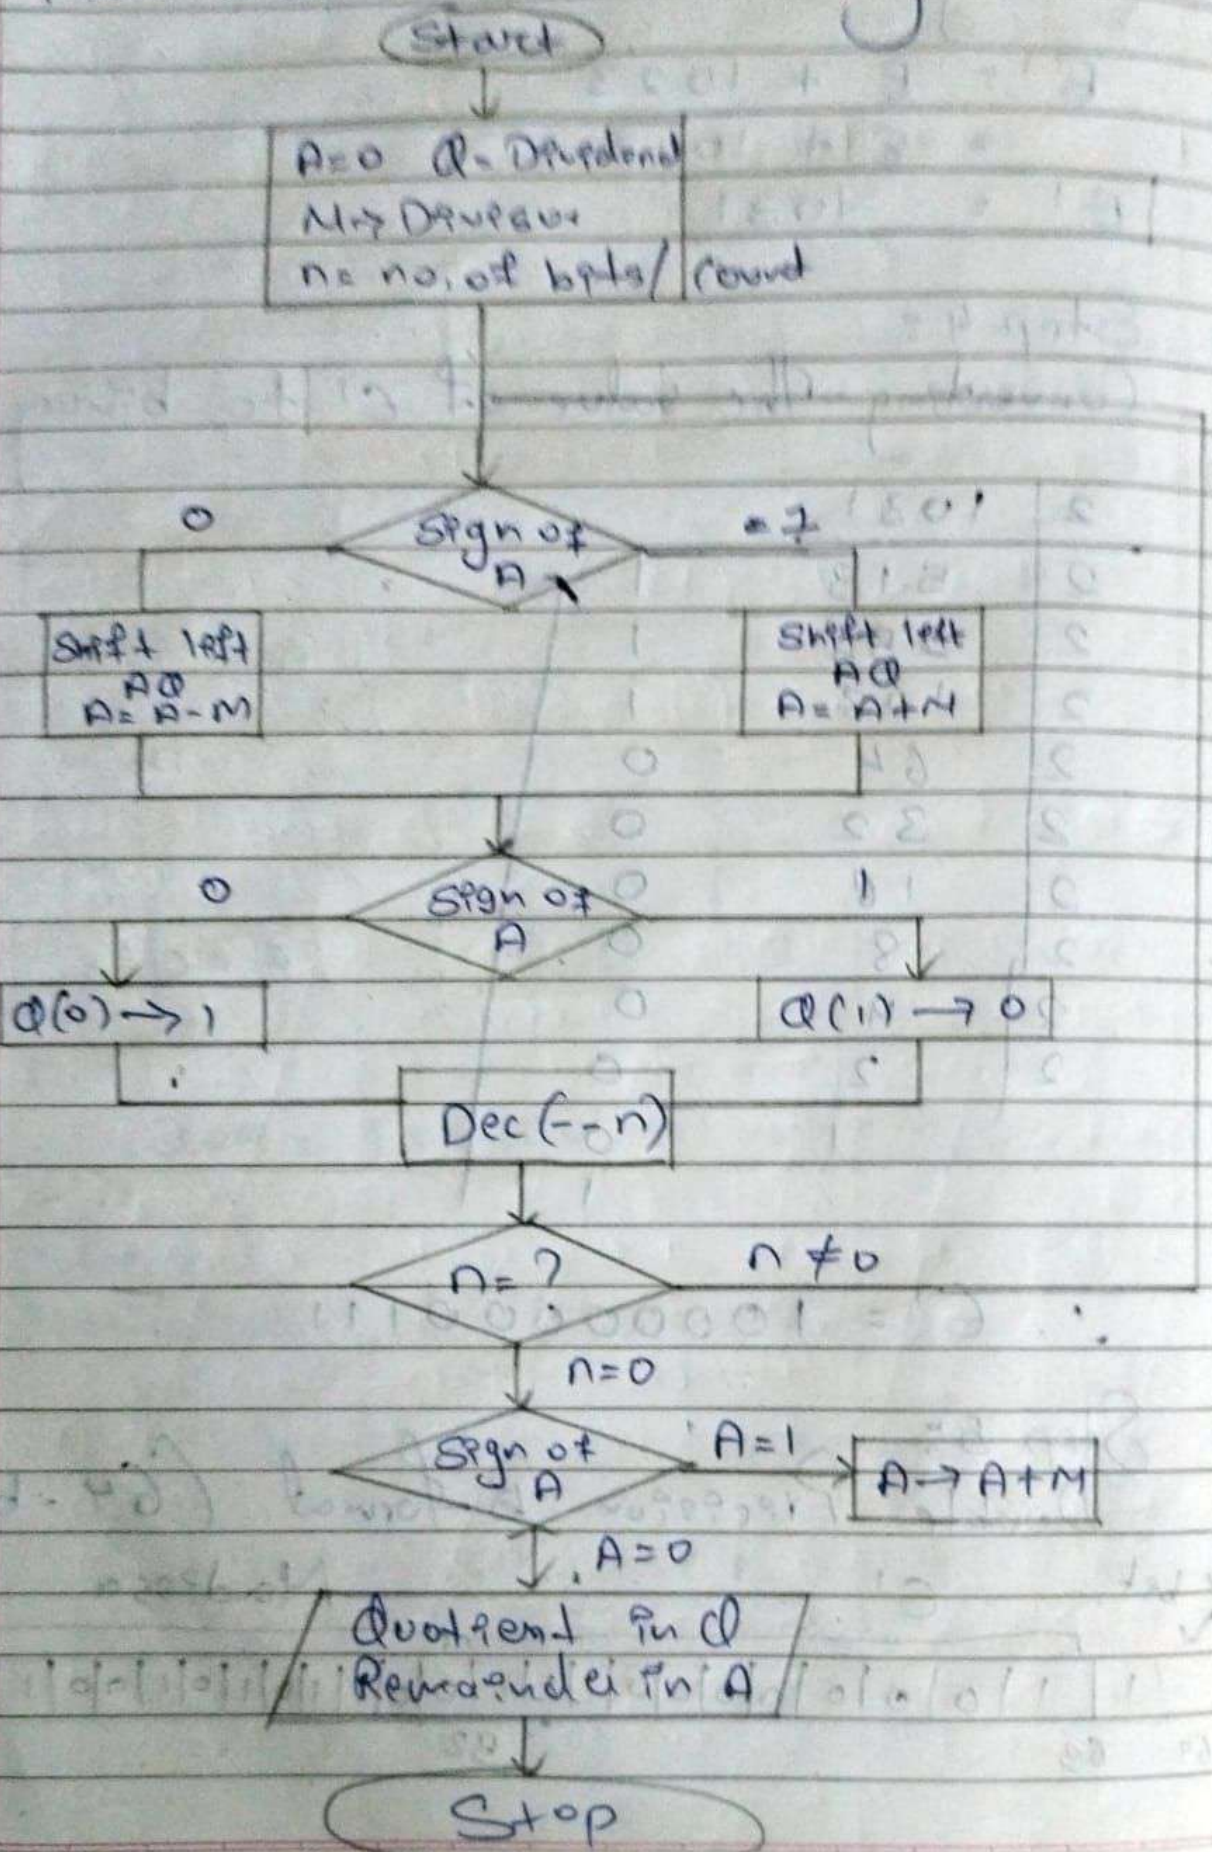 Start
A=0 Q- Dividend
M→ Divisor
n= no. of bits/ count
Sign of
A
0
= 1
Shift left
AQ
A= A-M
Shift left
AQ
A= A+M
Sign of
A
0
1
Q(0) → 1
Q(1) → 0
Dec(--n)
n= ?
n ≠ 0
n=0
Sign of
A
A=1
A→ A+M
A=0
Quotient in Q
Remainder in A
Stop